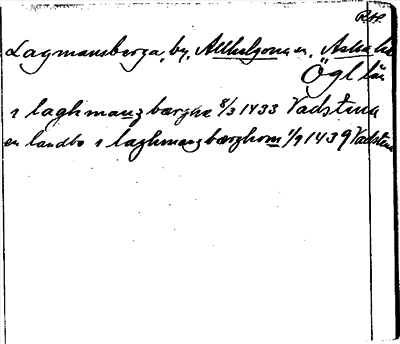 RAP.
Lagmansberga, by, Allhelgona sn, Aska hd
Ögl län
i laghmanz bærghe 8/3 1433 Vadstena
en landbo i laghmanz bærghom 1/9 1439 Vadstena